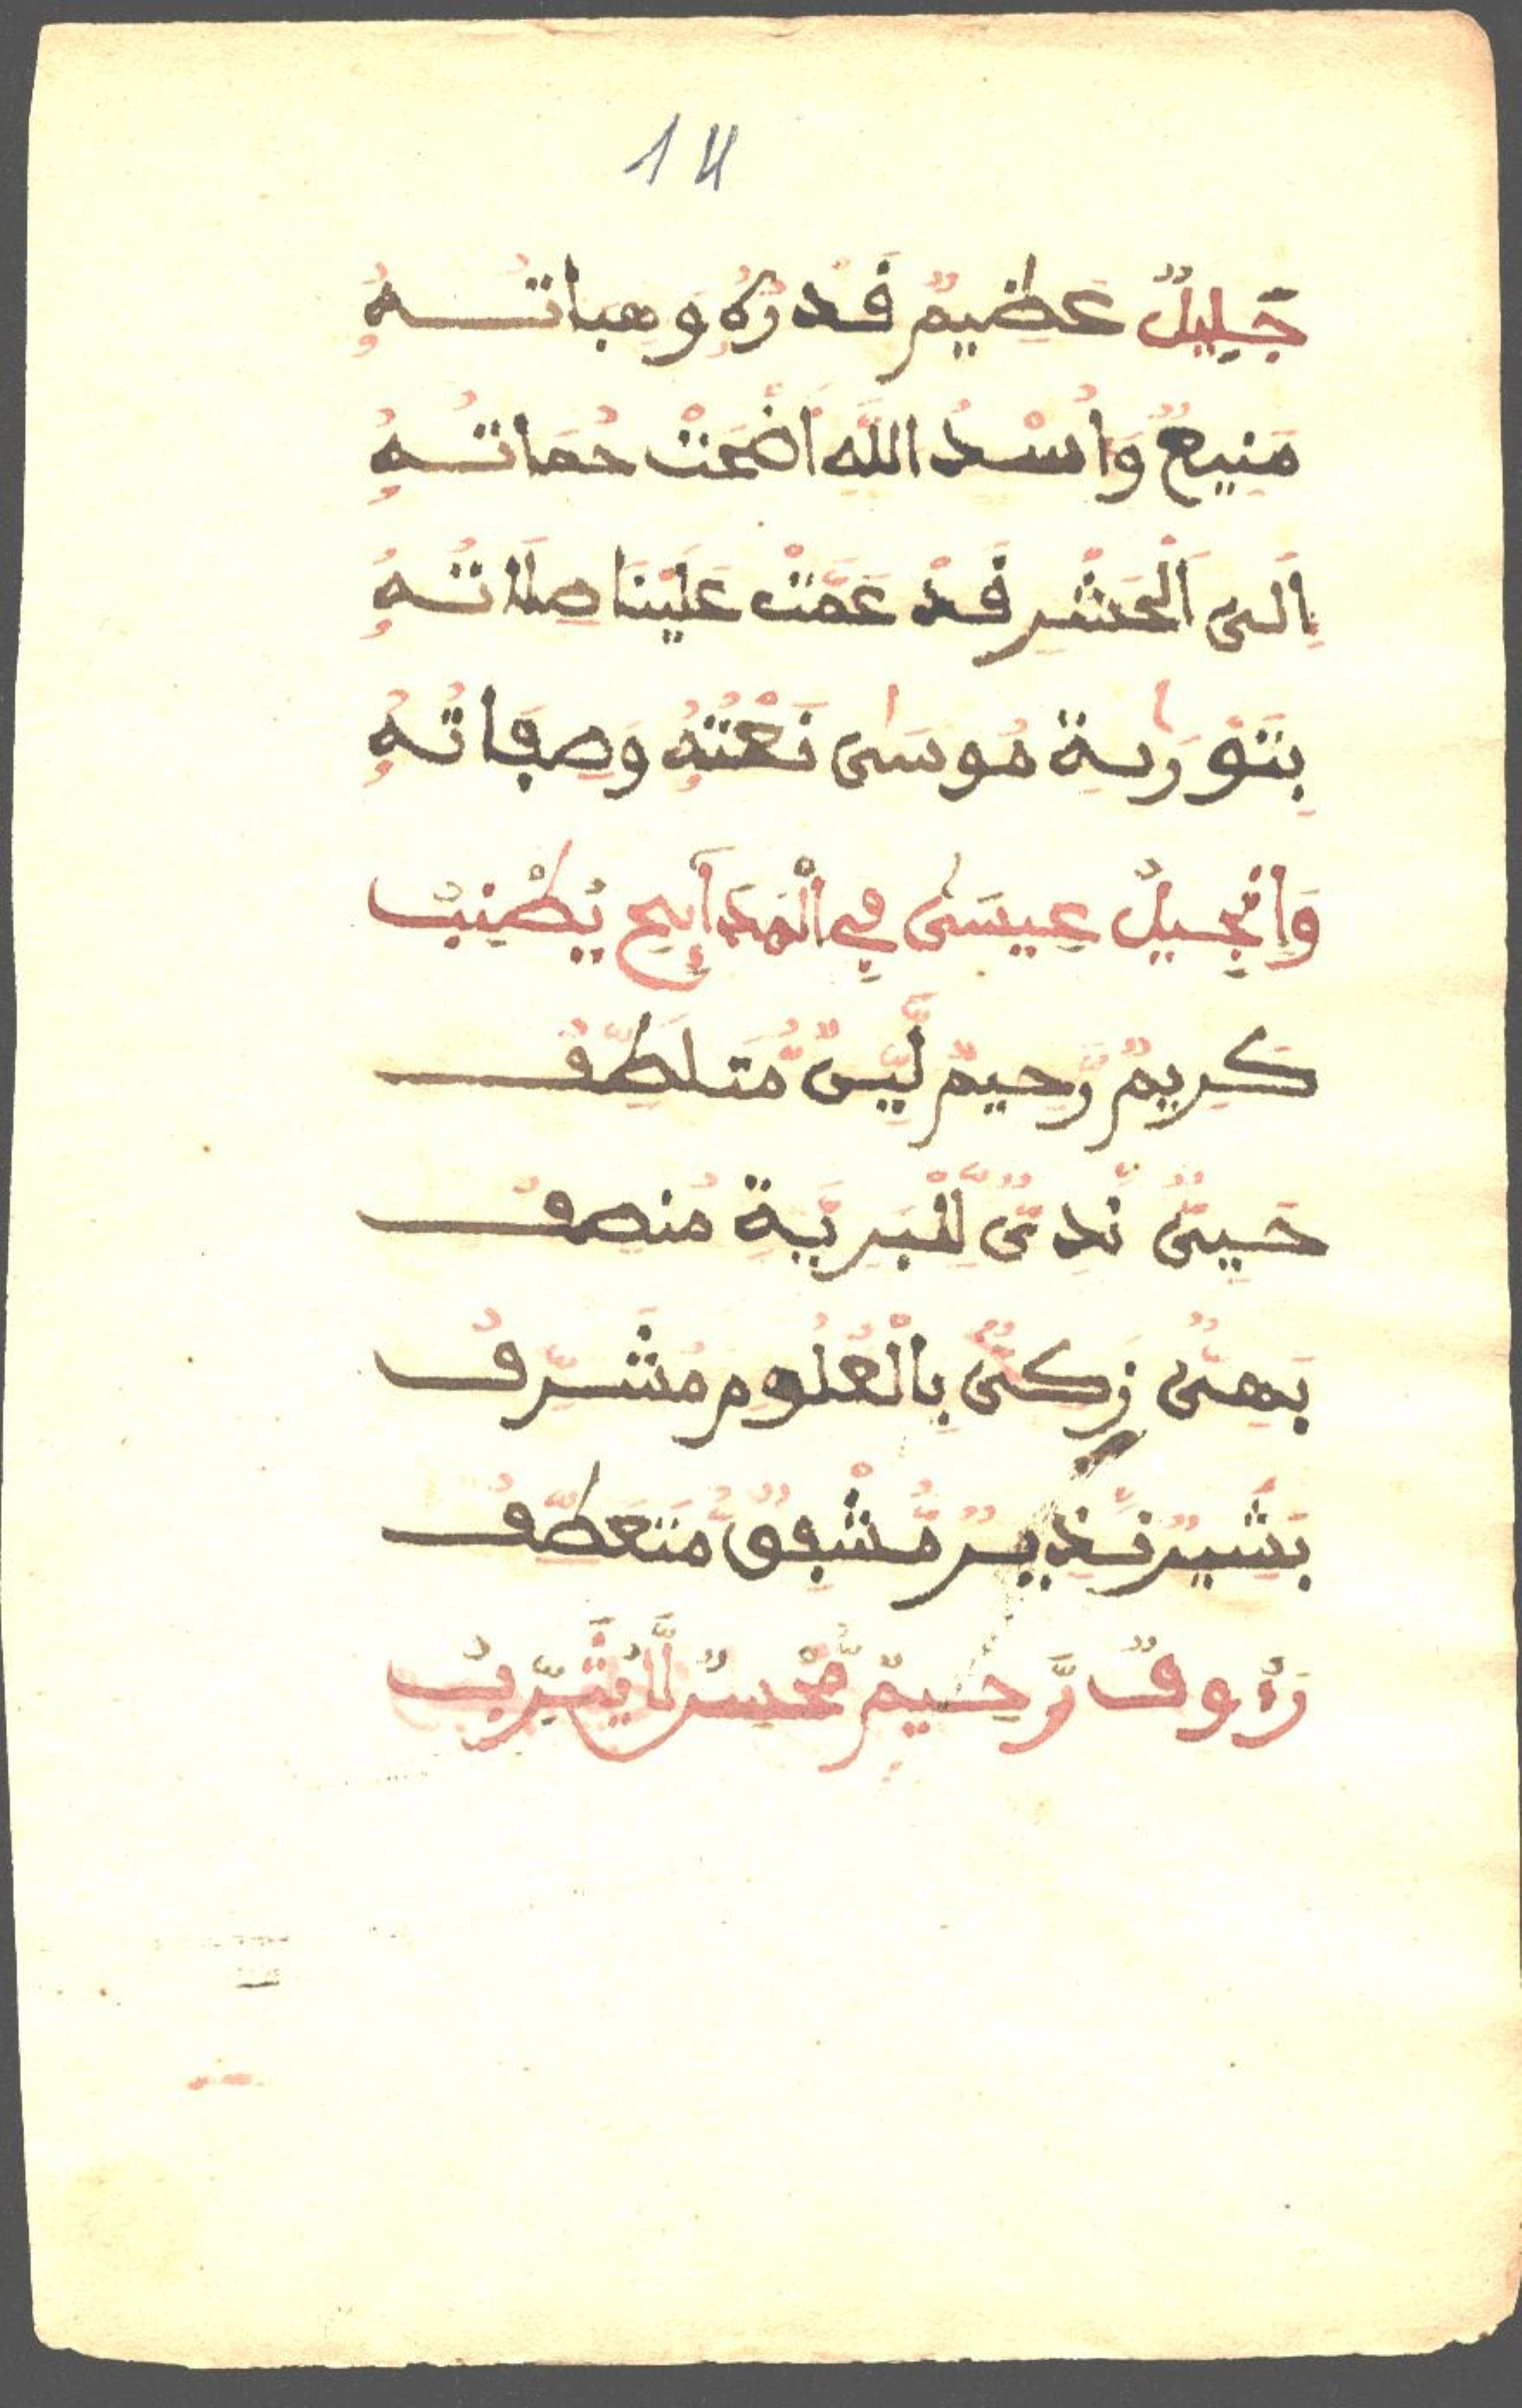 14
جَلِيلٌ عَظِيمٌ قَدْرُهُ وَهِبَاتُهُ
مَنِيعٌ وَأُسْدُ اللَّهِ أَضْحَتْ حُمَاتُهُ
إِلَى الْحَشْرِ قَدْ عَمَّتْ عَلَيْنَا صِلَاتُهُ
بِتَوْرَىٰةِ مُوسَىٰ نَعْتُهُ وَصِفَاتُهُ
وَإِنْجِيلُ عِيسَىٰ فِي الْمَدَايِحِ يُطْنِبُ
كَرِيمٌ رَّحِيمٌ لَّيِّنٌ مُّتَلَطِّفُ
حَيِيٌّ نَّدِيٌّ لِّلْبَرِيَّةِ مُنْصِفُ
بَهِيٌّ زَكِيٌّ بِالْعُلُومِ مُشَرِّفُ
بَشِيرٌ نَّذِيرٌ مُّشْفِقٌ مُّتَعَطِّفُ
رَءُوفٌ رَّحِيمٌ مُّحْسِنٌ لَّا يُثَرِّبُ